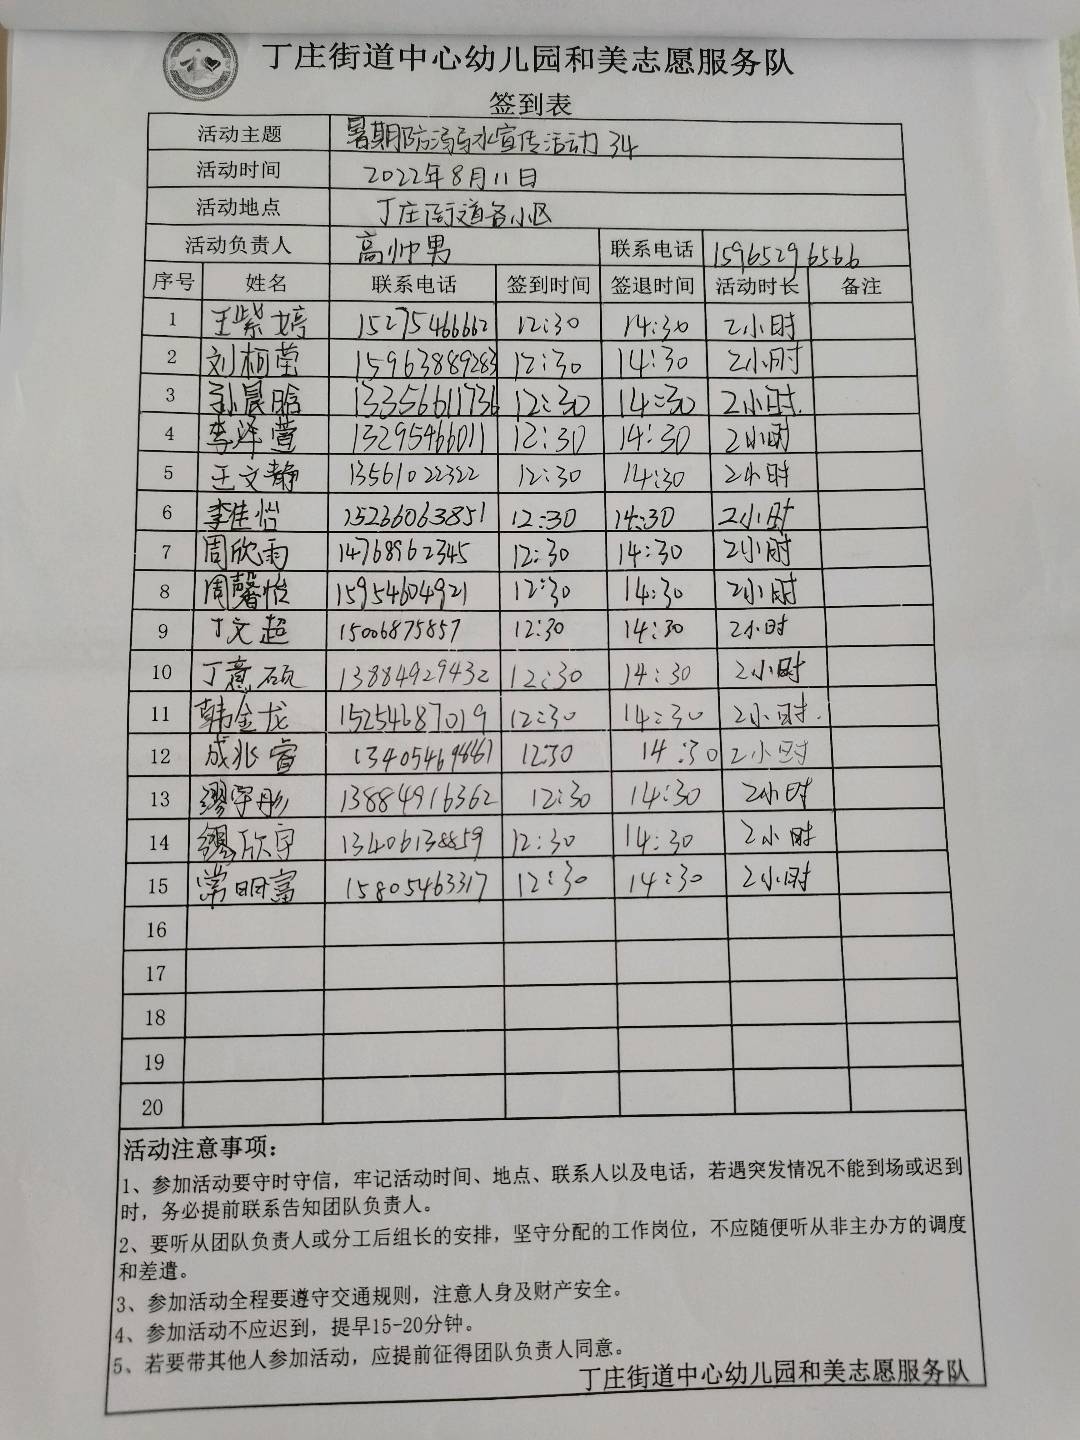 丁庄街道中心幼儿园和美志愿服务队
签到表
活动主题 暑期防溺水宣传活动 34
活动时间 2022年8月11日
活动地点 丁庄街道各小区
活动负责人 高帅男 联系电话 15965296566
序号 姓名 联系电话 签到时间 签退时间 活动时长 备注
1 王紫婷 15275466662 12:30 14:30 2小时
2 刘柯莹 15963889283 12:30 14:30 2小时
3 孙晨晗 13356611736 12:30 14:30 2小时.
4 李泽萱 13295466011 12:30 14:30 2小时
5 王文静 13561022322 12:30 14:30 2小时
6 李佳怡 15266063851 12:30 14:30 2小时
7 周欣雨 14768962345 12:30 14:30 2小时
8 周馨怡 15954604921 12:30 14:30 2小时
9 丁文超 15006875857 12:30 14:30 2小时
10 丁意硕 13884929432 12:30 14:30 2小时
11 韩金龙 15254687019 12:30 14:30 2小时.
12 成兆睿 12:30 14:30 2小时
13 缪宇彤 13884916362 12:30 14:30 2小时
14 13406138859 12:30 14:30 2小时
15 常明富 15805463317 12:30 14:30 2小时
16
17
18
19
20
活动注意事项：
1、参加活动要守时守信，牢记活动时间、地点、联系人以及电话，若遇突发情况不能到场或迟到
时，务必提前联系告知团队负责人。
2、要听从团队负责人或分工后组长的安排，坚守分配的工作岗位，不应随便听从非主办方的调度
和差遣。
3、参加活动全程要遵守交通规则，注意人身及财产安全。
4、参加活动不应迟到，提早15-20分钟。
5、若要带其他人参加活动，应提前征得团队负责人同意。
丁庄街道中心幼儿园和美志愿服务队